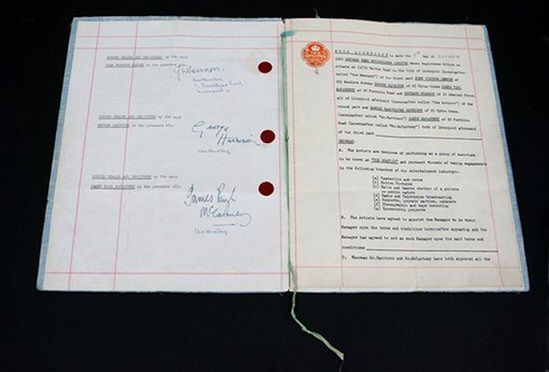 SIGNED SEALED AND DELIVERED by the said
JOHN WINSTON LENNON in the presence of:-
JWLennon.
SIGNED SEALED AND DELIVERED by the said
GEORGE HARRISON in the presence of:-
George
Harrison
SIGNED SEALED AND DELIVERED by the said
JAMES PAUL McCARTNEY in the presence of:-
James Paul
McCartney
THIS AGREEMENT is made the day of
1962 BETWEEN NEMS ENTERPRISES LIMITED whose registered Office is
situate at Walton Road in the City of Liverpool (hereinafter
called "the Manager") of the first part JOHN WINSTON LENNON of
251 Menlove Avenue GEORGE HARRISON of 25 Upton Green JAMES PAUL
McCARTNEY of 20 Forthlin Road and RICHARD STARKEY of 10 Admiral Grove
all of Liverpool aforesaid (hereinafter called "the Artists") of the
second part and HAROLD HARGREAVES HARRISON of 25 Upton Green
(hereinafter called "Mr.Harrison") JAMES McCARTNEY of 20 Forthlin
Road (hereinafter called "Mr.McCartney") both of Liverpool aforesaid
of the third part
WHEREAS:
A. The Artists are desirous of performing as a group of musicians
to be known as "THE BEATLES" and pursuant thereto of taking engagements
in the following branches of the entertainment industry:-
(a) Vaudeville and revue
(b) Motion Pictures
(c) Balls and dances whether of a private
or public nature
(d) Radio and Television broadcasting
(e) Concerts, private parties, cabarets
(f) Phonographic and tape recording
(g) Sponsorship projects
B. The Artists have agreed to appoint the Manager to be their
Manager upon the terms and conditions hereinafter appearing and the
Manager has agreed to act as such Manager upon the said terms and
conditions
C. Whereas Mr.Harrison and Mr.McCartney have both approved all the